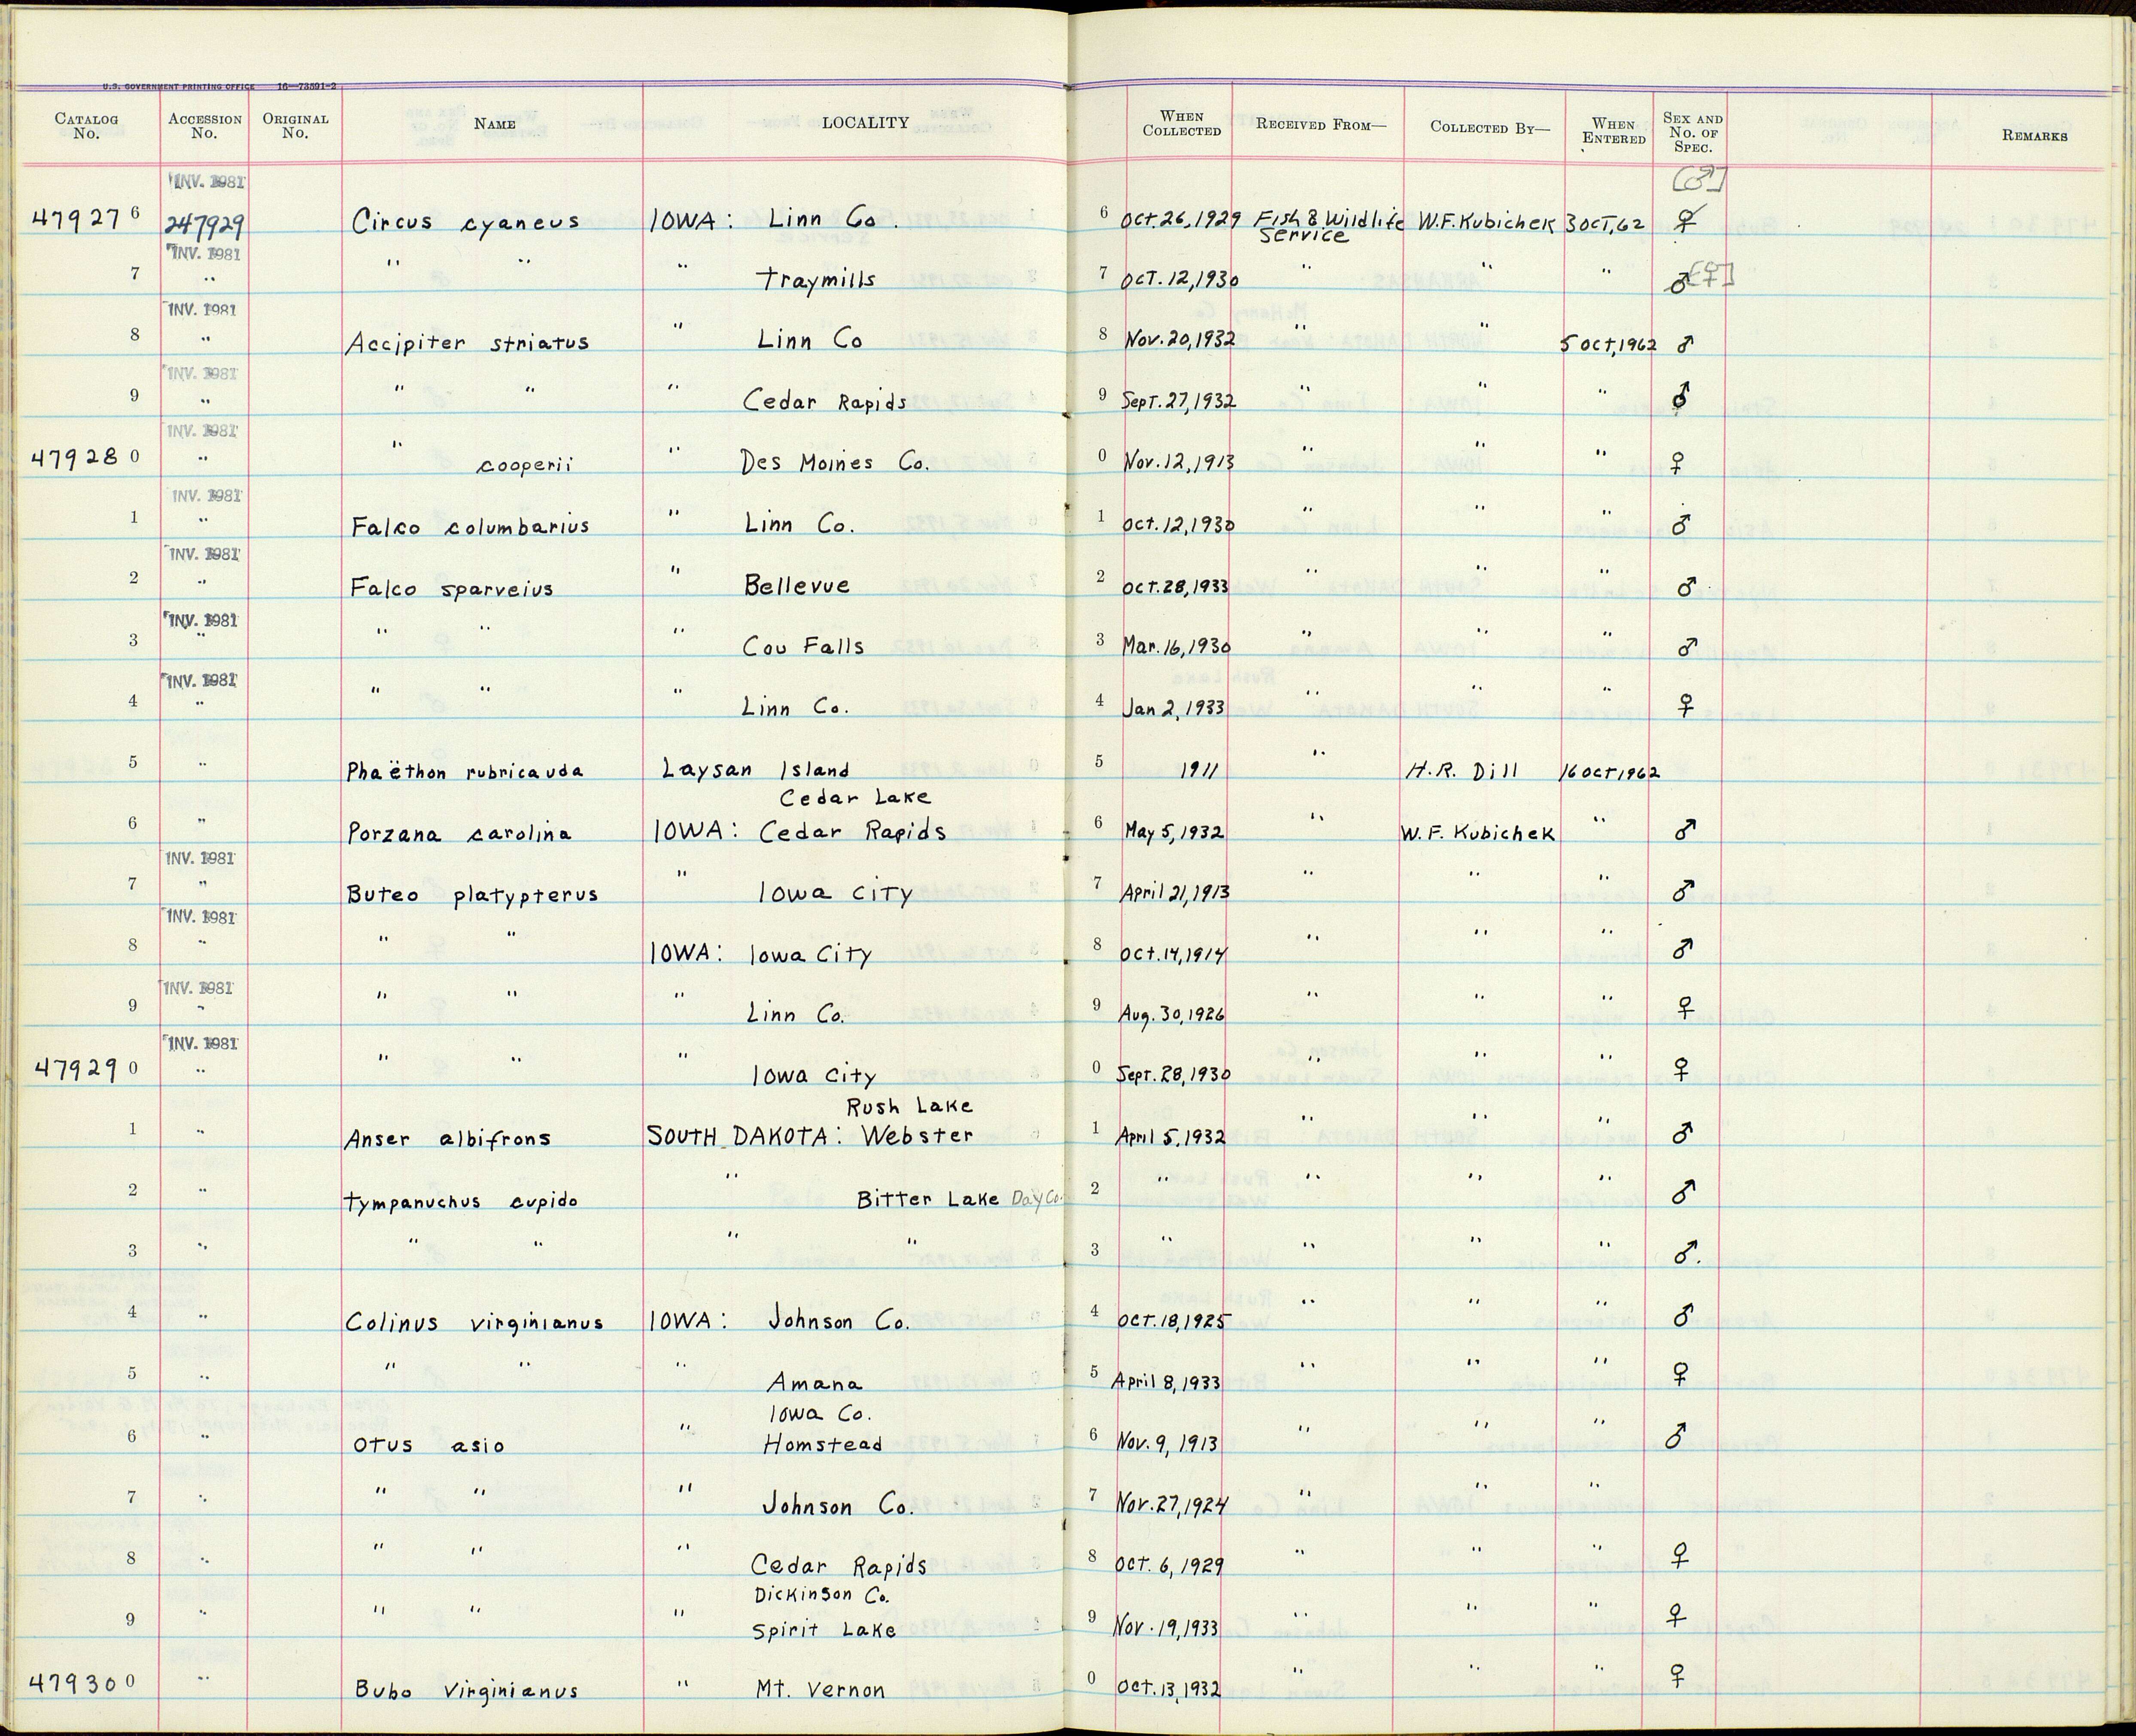 U.S. GOVERNMENT PRINTING OFFICE 16—73891-2
CATALOG No. ACCESSION No. ORIGINAL No. NAME LOCALITY WHEN COLLECTED RECEIVED FROM— COLLECTED BY— WHEN ENTERED SEX AND No. OF SPEC. REMARKS
INV. 1981 [♂]
479276 247929 Circus cyaneus IOWA: Linn Co. 6 Oct. 26, 1929 Fish & Wildlife Service W.F. Kubichek 3 Oct, 62 ♀
INV. 1981
7 " " " " Traymills 7 Oct. 12, 1930 " " " ♂ [♀]
INV. 1981
8 " Accipiter striatus " Linn Co 8 Nov. 20, 1932 " " 5 Oct, 1962 ♂
INV. 1981
9 " " " " Cedar Rapids 9 Sept. 27, 1932 " " " ♂
INV. 1981
479280 " " cooperii " Des Moines Co. 0 Nov. 12, 1913 " " " ♀
INV. 1981
1 " Falco columbarius " Linn Co. 1 Oct. 12, 1930 " " " ♂
INV. 1981
2 " Falco sparveius " Bellevue 2 Oct. 28, 1933 " " " ♂
INV. 1981
3 " " " " Cou Falls 3 Mar. 16, 1930 " " " ♂
INV. 1981
4 " " " " Linn Co. 4 Jan 2, 1933 " " " ♀
5 " Phaëthon rubricauda Laysan Island 5 1911 " H.R. Dill 16 Oct, 1962
Cedar Lake
6 " Porzana carolina IOWA: Cedar Rapids 6 May 5, 1932 " W.F. Kubichek " ♂
INV. 1981
7 " Buteo platypterus " Iowa City 7 April 21, 1913 " " " ♂
INV. 1981
8 " " " IOWA: Iowa City 8 Oct. 14, 1914 " " " ♂
INV. 1981
9 " " " " Linn Co. 9 Aug. 30, 1926 " " " ♀
INV. 1981
479290 " " " " Iowa City 0 Sept. 28, 1930 " " " ♀
Rush Lake
1 " Anser albifrons SOUTH DAKOTA: Webster 1 April 5, 1932 " " " ♂
2 " Tympanuchus cupido " Bitter Lake Day Co. 2 " " " " ♂
3 " " " " " 3 " " " " ♂.
4 " Colinus virginianus IOWA: Johnson Co. 4 Oct. 18, 1925 " " " ♂
5 " " " " Amana 5 April 8, 1933 " " " ♀
Iowa Co.
6 " Otus asio " Homstead 6 Nov. 9, 1913 " " " ♂
7 " " " " Johnson Co. 7 Nov. 27, 1924 " " "
8 " " " " Cedar Rapids 8 Oct. 6, 1929 " " " ♀
Dickinson Co.
9 " " " " Spirit Lake 9 Nov. 19, 1933 " " " ♀
479300 " Bubo Virginianus " Mt. Vernon 0 Oct. 13, 1932 " " " ♀